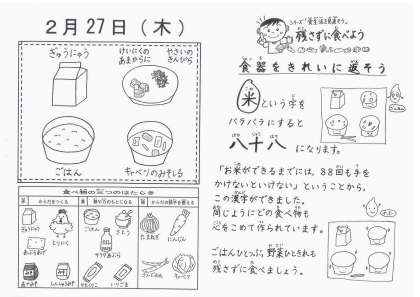 2月27日（木）
ぎゅうにゅう
けいにくの
あまからに
やさいの
きんぴら
ごはん
キャベツのみそしる
食べ物の三つのはたらき
からだをつくる
熱や力のもとになる
からだの調子を整える
ぎゅうにゅう
とりにく
あぶらあげ
ごはん
さとう
サラダあぶら
たまねぎ
にんじん
キャベツ
残さずに食べよう
食器をきれいに返そう
米という字を
バラバラにすると
八十八
になります。
「お米ができるまでには、88回も手を
かけないといけない」ということから、
この漢字ができました。
同じようにどの食べ物も
心をこめて作られています。
ごはんひとつぶ、野菜ひときれも
残さずに食べましょう。